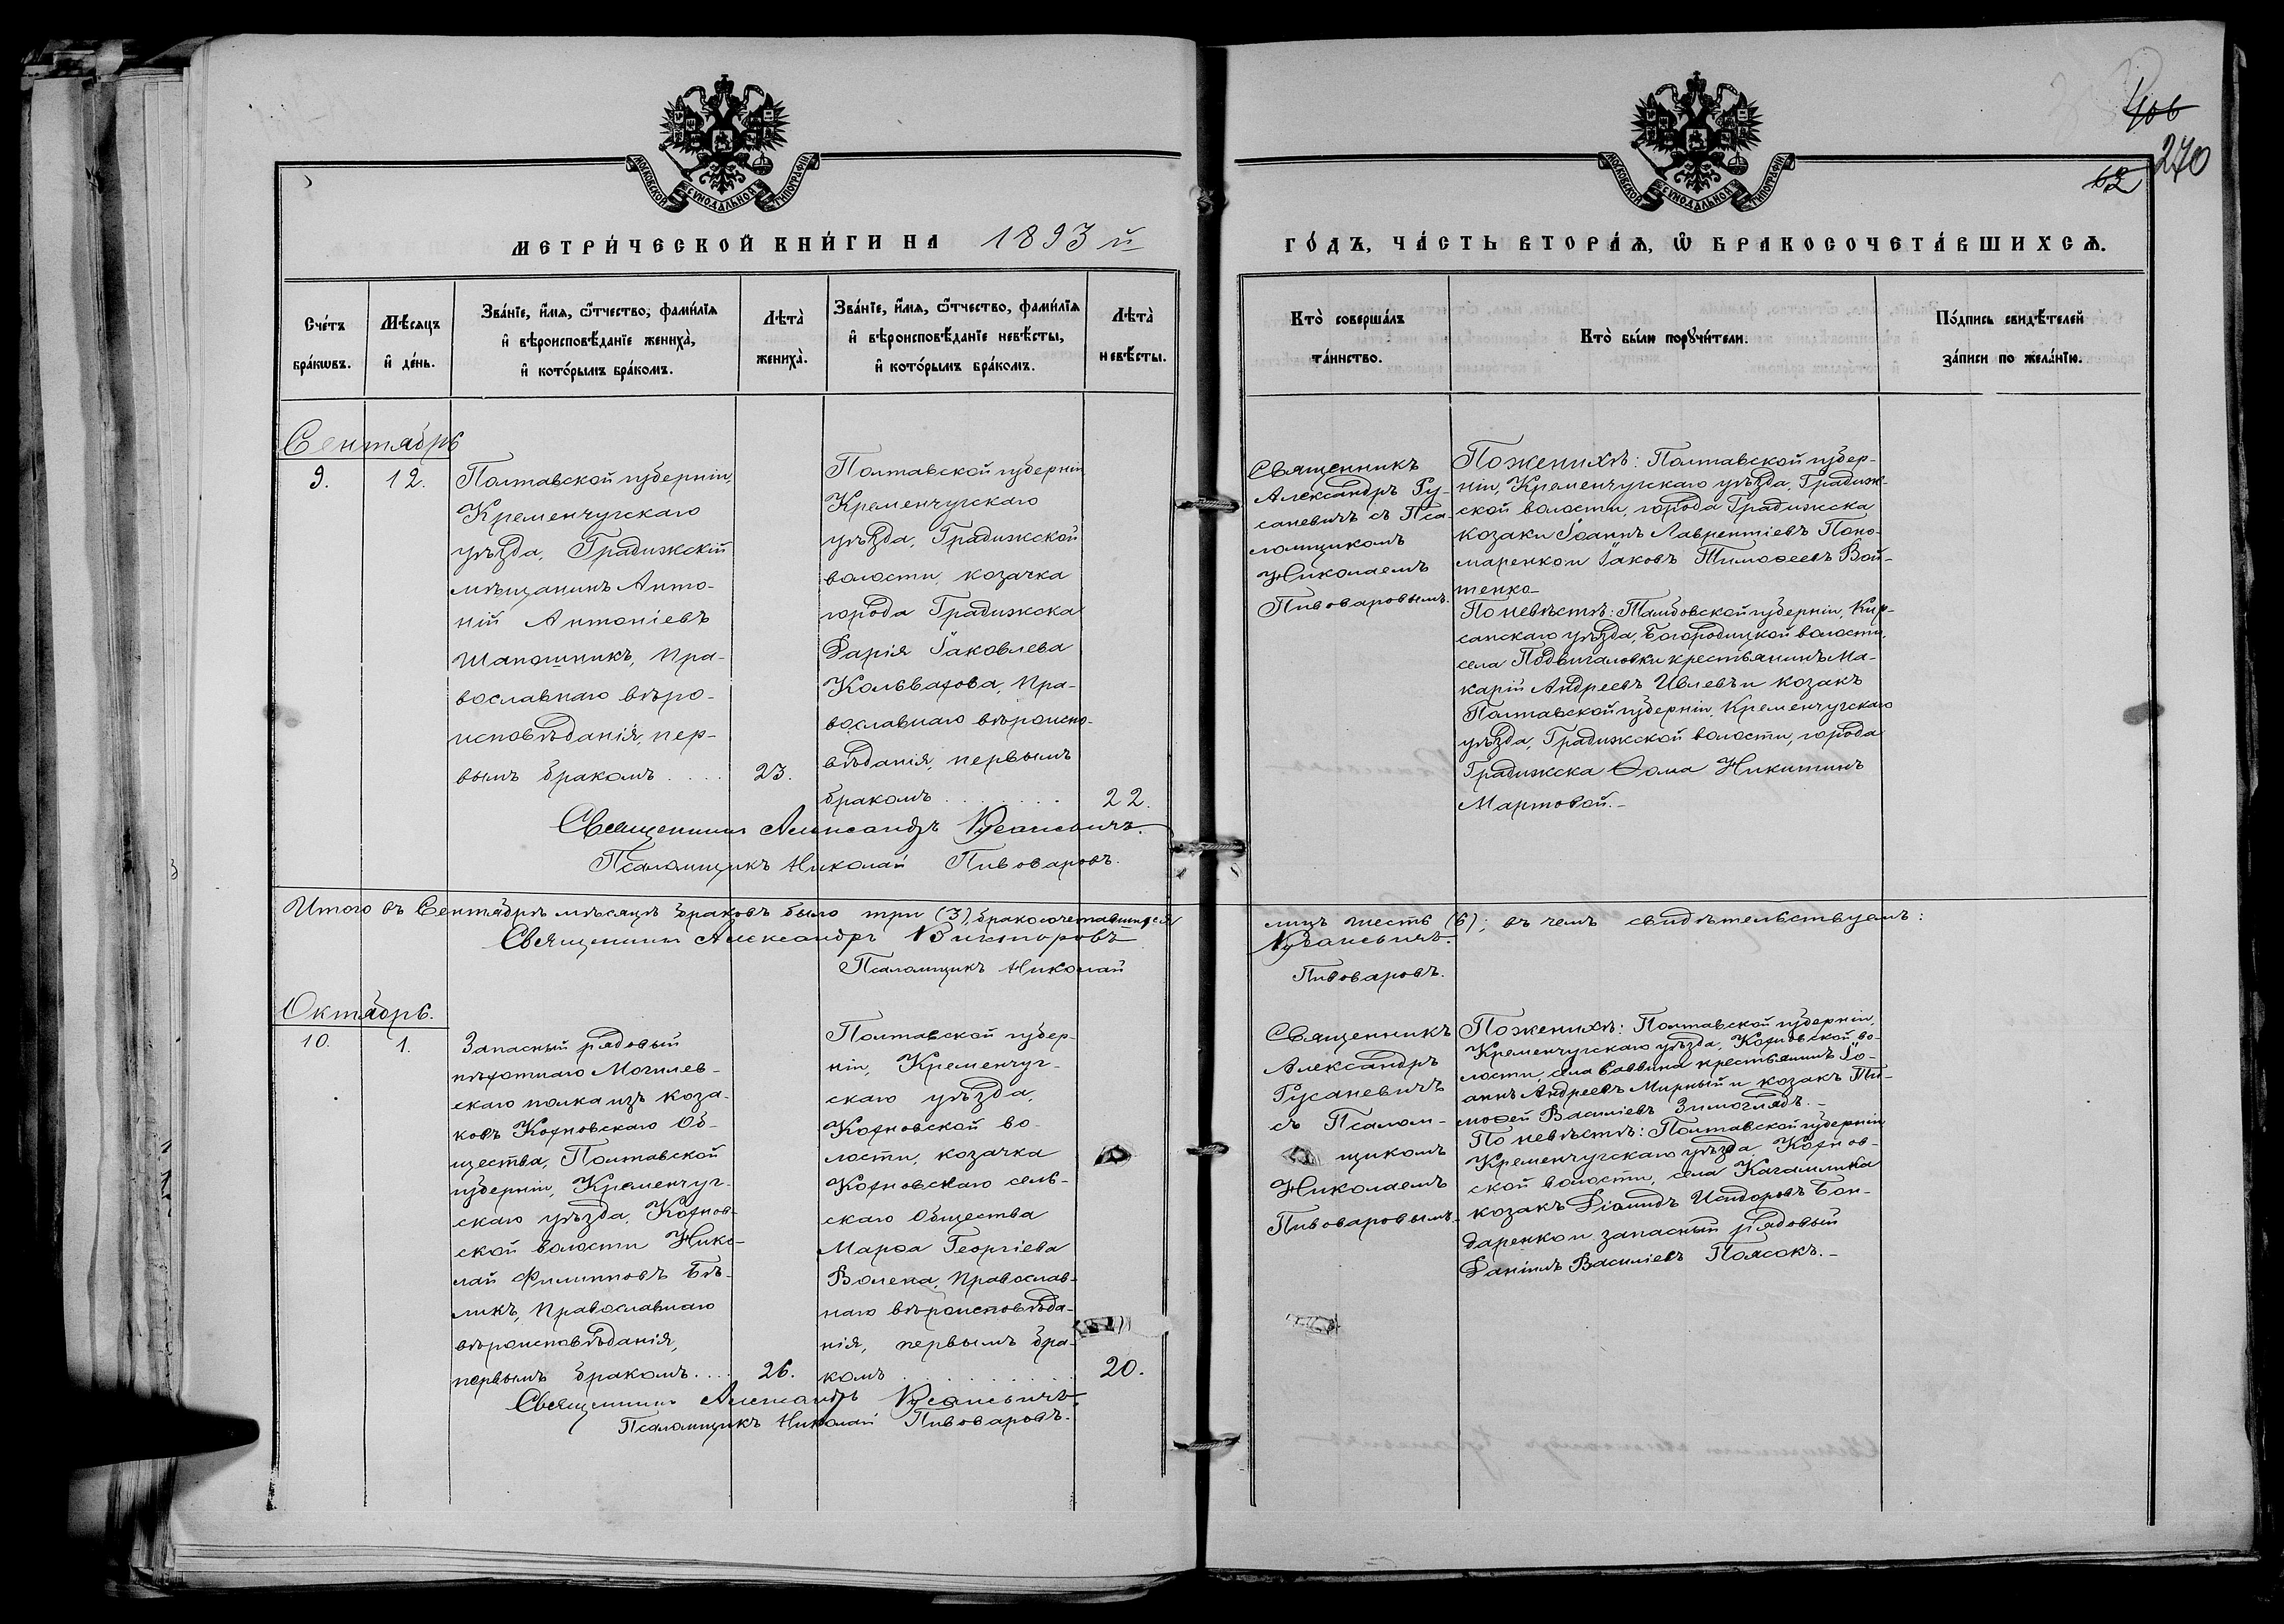 406
270
62
МОСКОВСКОЙ СУНОДАЛЬНОЙ ТИПОГРАФІИ
МОСКОВСКОЙ СУНОДАЛЬНОЙ ТИПОГРАФІИ
МЕТРИ́ЧЕСКОЙ КНИ́ГИ НА 1893 й
ГО́ДЪ, ЧА́СТЬ ВТОРА́Ѧ, Ѽ БРАКОСОЧЕТА́ВШИХСѦ.
Сче́тъ
бра́кѡвъ.
Мѣ́сѧцъ
и҆ де́нь.
Зва́нїе, и҆́мѧ, ѻ҆́тчество, фами́лїѧ
и҆ вѣроисповѣ́данїе жениха̀,
и҆ кото́рымъ бра́комъ.
Лѣта̀
жениха̀.
Зва́нїе, и҆́мѧ, ѻ҆́тчество, фами́лїѧ
и҆ вѣроисповѣ́данїе невѣ́сты,
и҆ кото́рымъ бра́комъ.
Лѣта̀
невѣ́сты.
Кто̀ соверша́лъ
та́инство.
Кто̀ бы́ли порꙋчи́тели.
По́дпись свидѣ́телей
за́писи по жела́нїю.
Сентябрь
9.
12.
Полтавской губерніи,
Кременчугскаго
уѣзда, Градижскій
мѣщанинъ Анто-
ній Антоніевъ
Шапошникъ, пра-
вославнаго вѣро-
исповѣданія, пер-
вымъ бракомъ . . . .
23.
Полтавской губерніи
Кременчугскаго
уѣзда, Градижской
волости, козачка
города Градижска
Дарія Іаковлева
Кольвахова, пра-
вославнаго вѣроиспо-
вѣданія, первымъ
бракомъ . . . . . . .
22.
Священникъ
Александръ Ру-
саневичъ съ Пса-
ломщикомъ
Николаемъ
Пивоваровымъ.
По женихѣ: Полтавской губер-
ніи, Кременчугскаго уѣзда, Градиж-
ской волости, города Градижска
козаки Іоаннъ Лаврентіевъ Поно-
маренко и Іаковъ Тимоѳеевъ Вой-
тенко
По невѣстѣ: Тамбовской губерніи, Кир-
санскаго уѣзда, Богородицкой волости,
села Подвигаловки крестьянинъ Ма-
карій Андреевъ Ивлевъ и козакъ
Полтавской губерніи, Кременчугскаго
уѣзда, Градижской волости, города
Градижска Ѳома Никитинъ
Мартовой.–
Священникъ Александръ Русаневичъ.
Псаломщикъ Николай Пивоваровъ.
Итого въ Сентябрѣ мѣсяцѣ браковъ было три (3), бракосочетавшихся лицъ шесть (6); въ чемъ свидѣтельствуемъ:
Священникъ Александръ Викторовъ Русаневичъ.
Псаломщикъ Николай Пивоваровъ.
Октябрь.
10.
1.
Запасный рядовый
пѣхотнаго Могилев-
скаго полка изъ коза-
ковъ Кохновскаго Об-
щества, Полтавской
губерніи, Кременчуг-
скаго уѣзда, Кохнов-
ской волости Нико-
лай Филипповъ Бѣ-
ликъ, Православнаго
вѣроисповѣданія,
первымъ бракомъ. . . .
26.
Полтавской губер-
ніи, Кременчуг-
скаго уѣзда,
Кохновской во-
лости, козачка
Кохновскаго сель-
скаго Общества
Марѳа Георгіева
Волека, Православ-
наго вѣроисповѣда-
нія, первымъ бра-
комъ . . . . . . . .
20.
Священникъ
Александръ
Русаневичъ
съ Псалом-
щикомъ
Николаемъ
Пивоваровымъ.
По женихѣ: Полтавской губерніи,
Кременчугскаго уѣзда, Кохновской во-
лости, села Саввина крестьянинъ Іо-
аннъ Андреевъ Мирный и козакъ Ти-
моѳей Василіевъ Зимоглядъ.–
По невѣстѣ: Полтавской губерніи
Кременчугскаго уѣзда, Кохнов-
ской волости, села Кагамлика
козакъ Діомидъ Исидоровъ Бон-
даренко и запасный рядовый
Даніилъ Василіевъ Поясокъ.–
Священникъ Александръ Русаневичъ.
Псаломщикъ Николай Пивоваровъ.